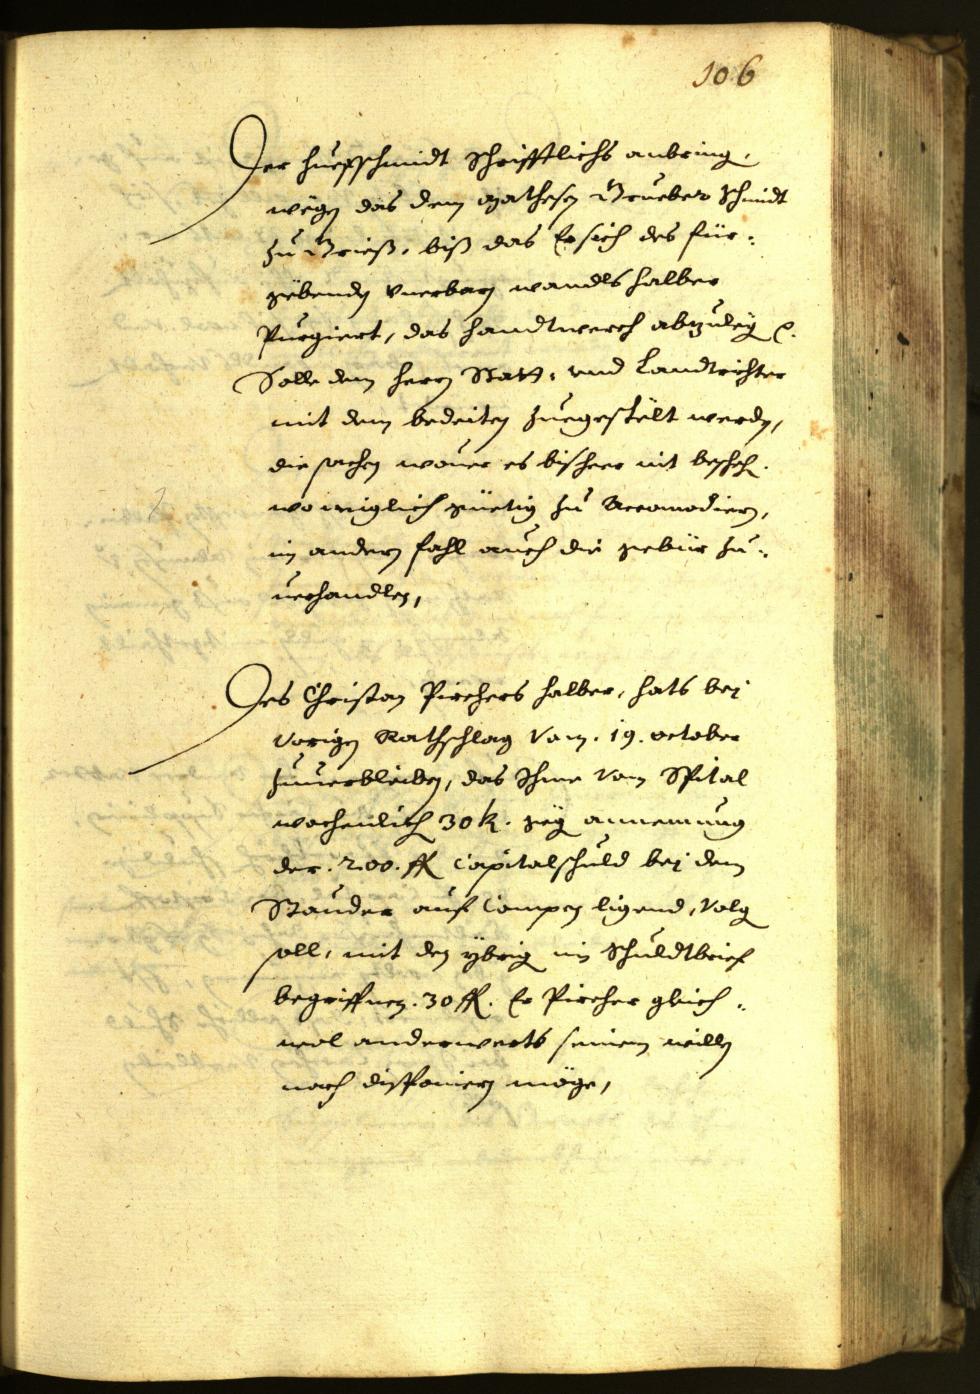 106
Der huefschmidt Schrifftlichs anbring,
wegen das dem Mathesen Grueber Schmidt
zu Grieß, biß das Er sich des für¬
gebenden vnerbarn wandls halber
Purgiert, das handtwerch abzulegen
Solle dem herrn Statt: vnd Landtrichter
mit dem bedeiten zuegestelt werden,
die sachen wouer es bisheer nit beschehen
wo müglich güetig zu Accomodiern,
im andern fahl auch die gebür zu¬
uerhandlen,
Des Christan Pirchers halber, hats bej
vorigen Rathschlag vom .19. october
zuuerbleiben, das Ihme vom Spital
wochenlich 30 k. gegen annemung
der .200. fl Capitalschuld bej dem
Stauder auf Compen ligend, volgen
soll, mit den ybrigen im Schuldtbrief
begriffnen .30 fl. Er Pircher gleich¬
wol anderwerts seinem willen
nach disponiern möge,